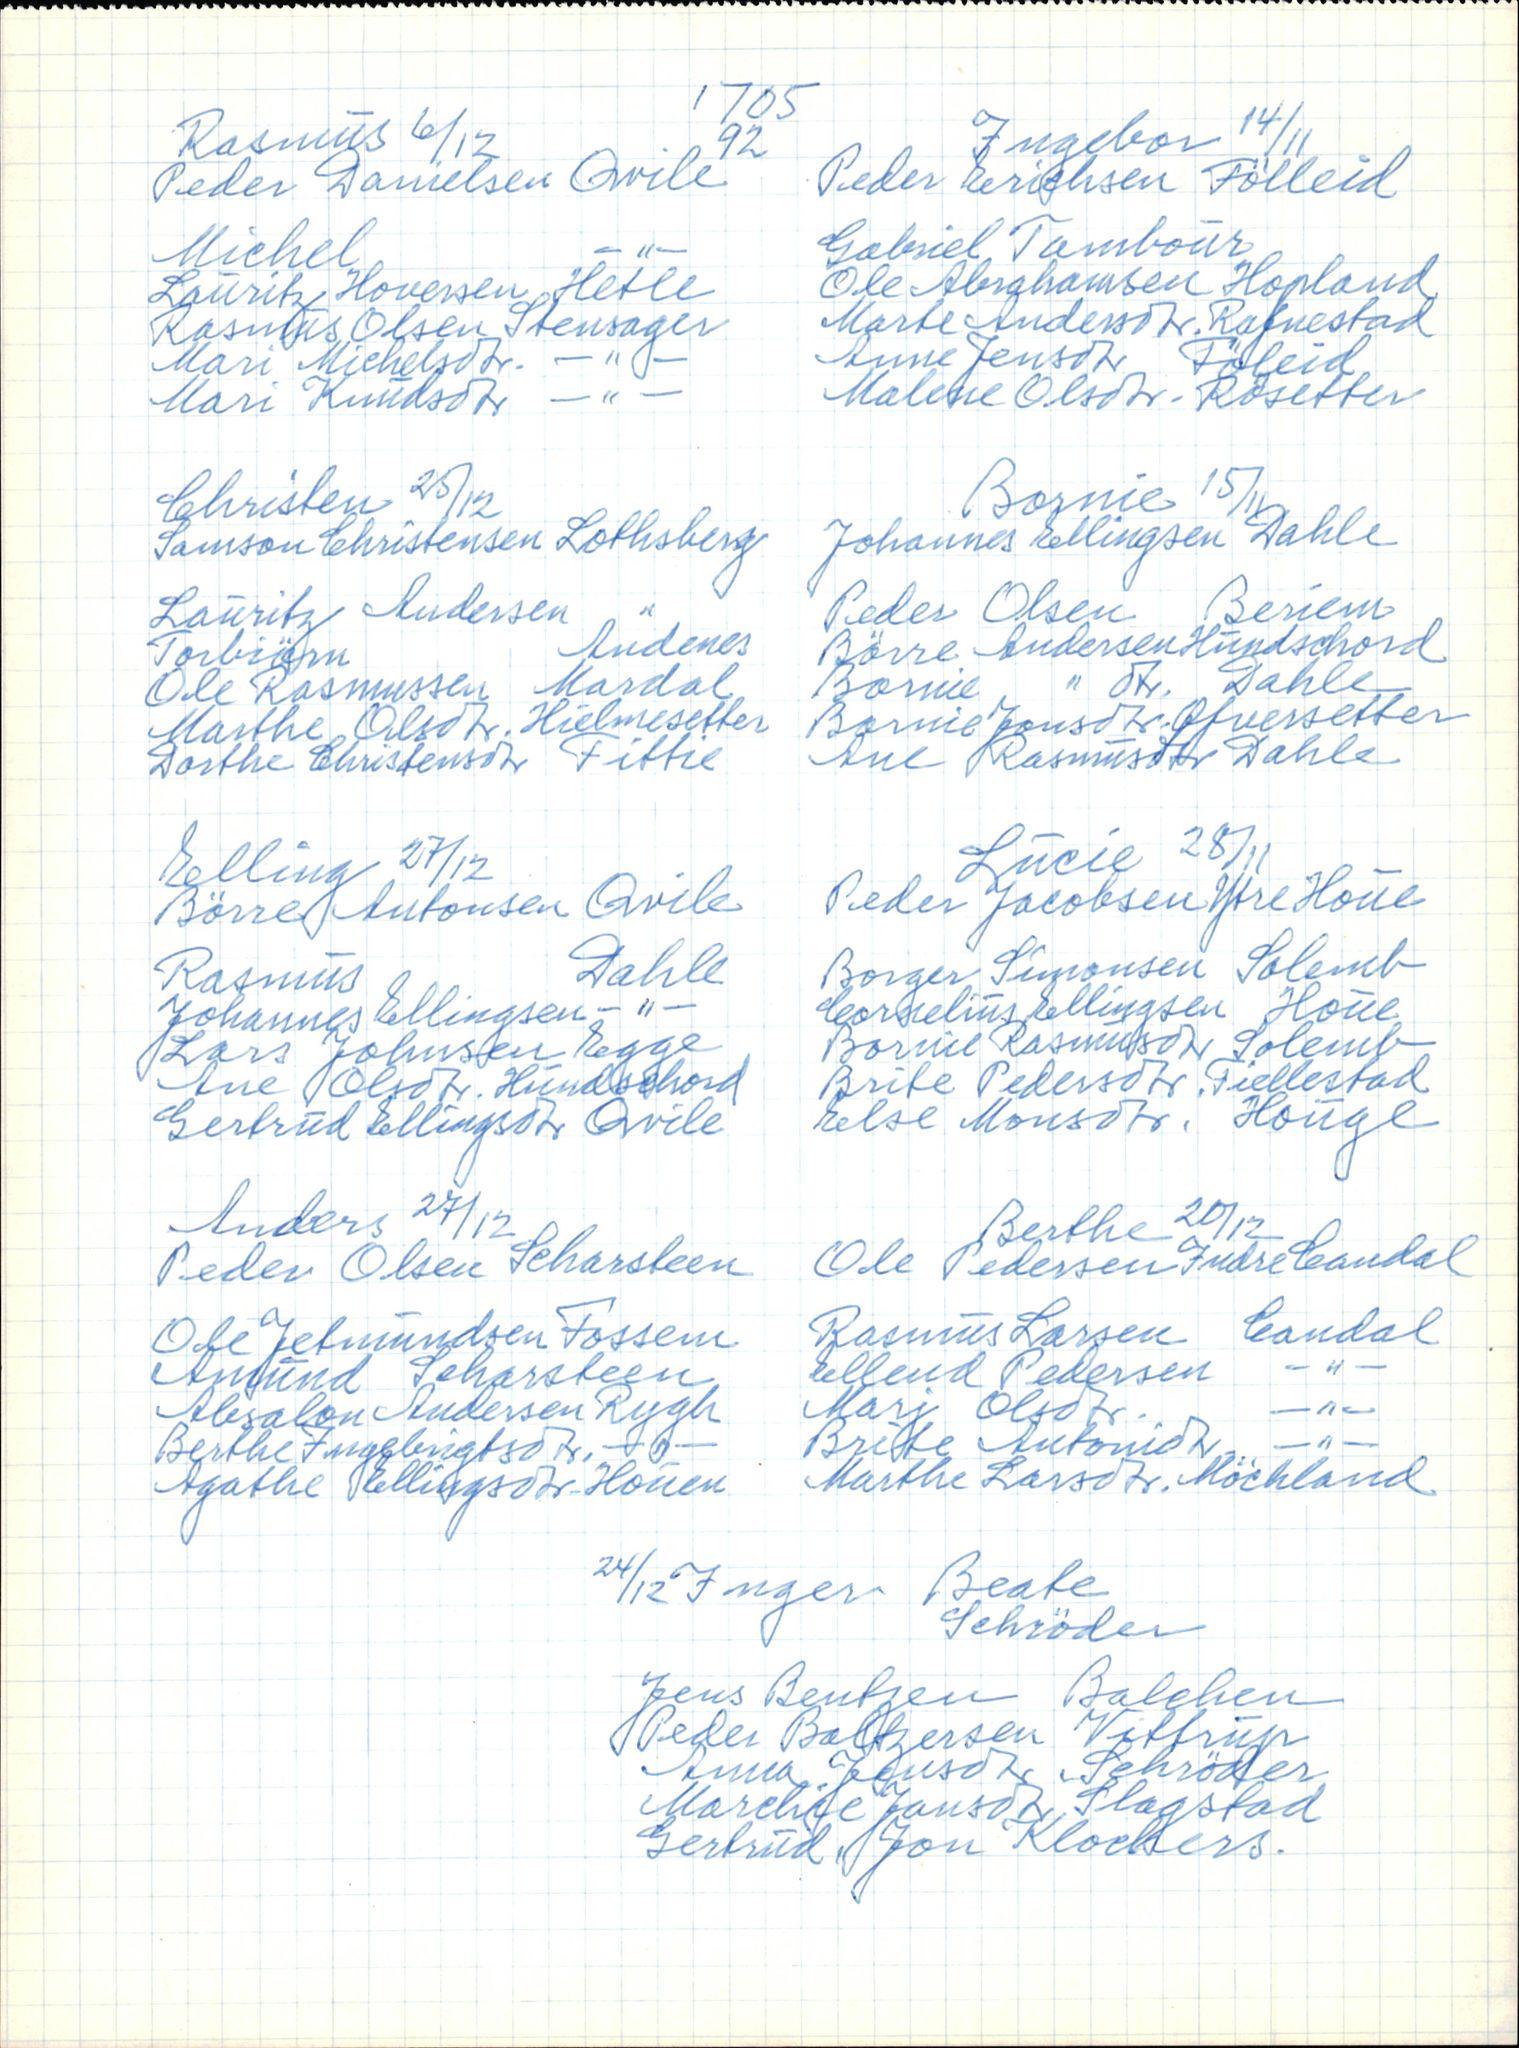 1705
92
Rasmus 6/12
Peder Danielsen Qvile
Michel — " —
Lauritz Hoversen Hetle
Rasmus Olsen Stensager
Mari Michelsdtr. — " —
Mari Knudsdtr — " —
Christen 25/12
Samson Christensen Lothsberg
Lauritz Andersen "
Torbiörn Andenes
Ole Rasmussen Mardal
Marthe Olsdtr. Hielmesetter
Dorthe Christensdtr Fittie
Elling 27/12
Börre Antonsen Qvile
Rasmus Dahle
Johannes Ellingsen — " —
Lars Johnsen Egge
Ane Olsdtr. Hundschord
Gertrud Ellingsdtr Qvile
Anders 27/12
Peder Olsen Scharsteen
Ole Jetmundsen Fossem
Amund Scharsteen
Absalon Andersen Rygh
Berthe Ingebrigtsdtr. — " —
Agathe Ellingsdtr. Houen
Ingebor 14/11
Peder Erichsen Fölleid
Gabriel Tambour
Ole Abrahamsen Hopland
Marte Andersdtr. Rafnestad
Anne Jensdtr Föleid
Malene Olsdtr. Rösetter
Bornie 15/11
Johannes Ellingsen Dahle
Peder Olsen Beriem
Börre Andersen Hundschord
Bornie " dtr. Dahle
Bornie Jonsdtr. Ofversetter
Ane Rasmusdtr Dahle
Lucie 28/11
Peder Jacobsen Ytre Houe
Borger Simonsen Solemb
Cornelius Ellingsen Houe
Bornie Rasmusdtr Solemb
Brite Pedersdtr. Fiellestad
Else Monsdtr. Houge
Berthe 20/12
Ole Pedersen Indre Candal
Rasmus Larsen Candal
Ellend Pedersen — " —
Mari Olsdtr. — " —
Brite Antonidtr — " —
Marthe Larsdtr. Möchland
24/12 Inger Beate
Schröder
Jens Bentzen Balchen
Peder Baltzersen Vittrup
Anna Jensdtr. Schröder
Marchie Jansdtr. Slagstad
Gertrud " Jon Klockers.